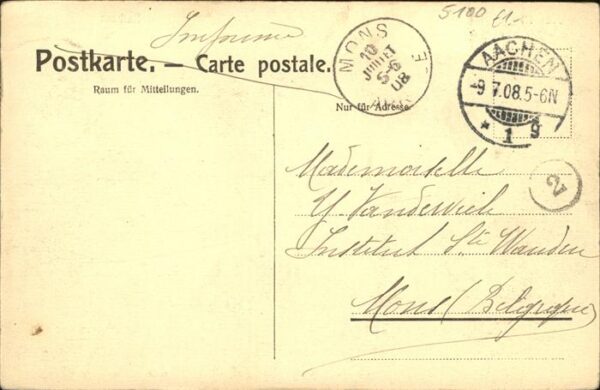 5100 61-
Imprimé
Postkarte. — Carte postale.
Raum für Mitteilungen.
Nur für Adresse.
MONS
10
JUILLET
5-6
08
AACHEN
-9.7.08.5-6N
* 1 g
2
Mademoiselle
Y Vanderviele
Institut Ste Waudru
Mons (Belgique)